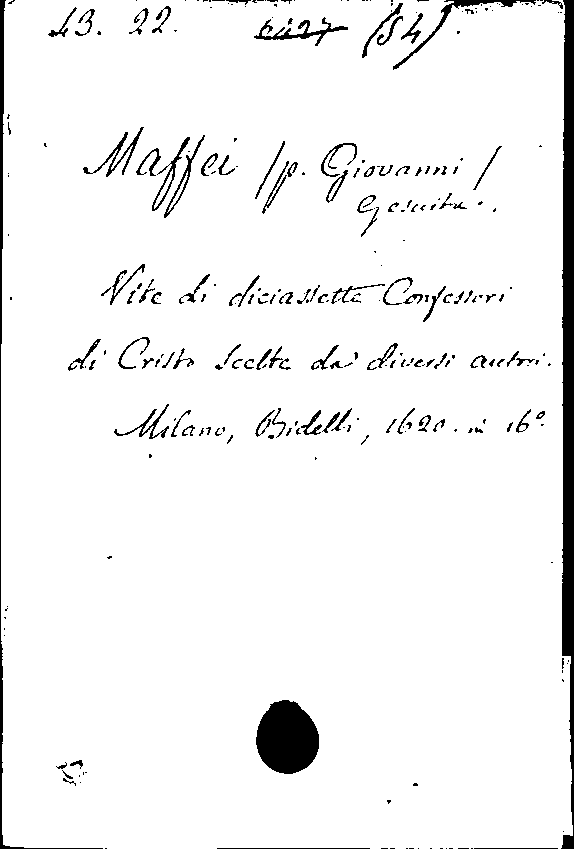 43. 22. (S4).
Maffei /p. Giovanni/
Gesuita.
Vite di diciassette Confessori
di Cristo scelte da diversi autori.
Milano, Bidelli, 1620. in 16º